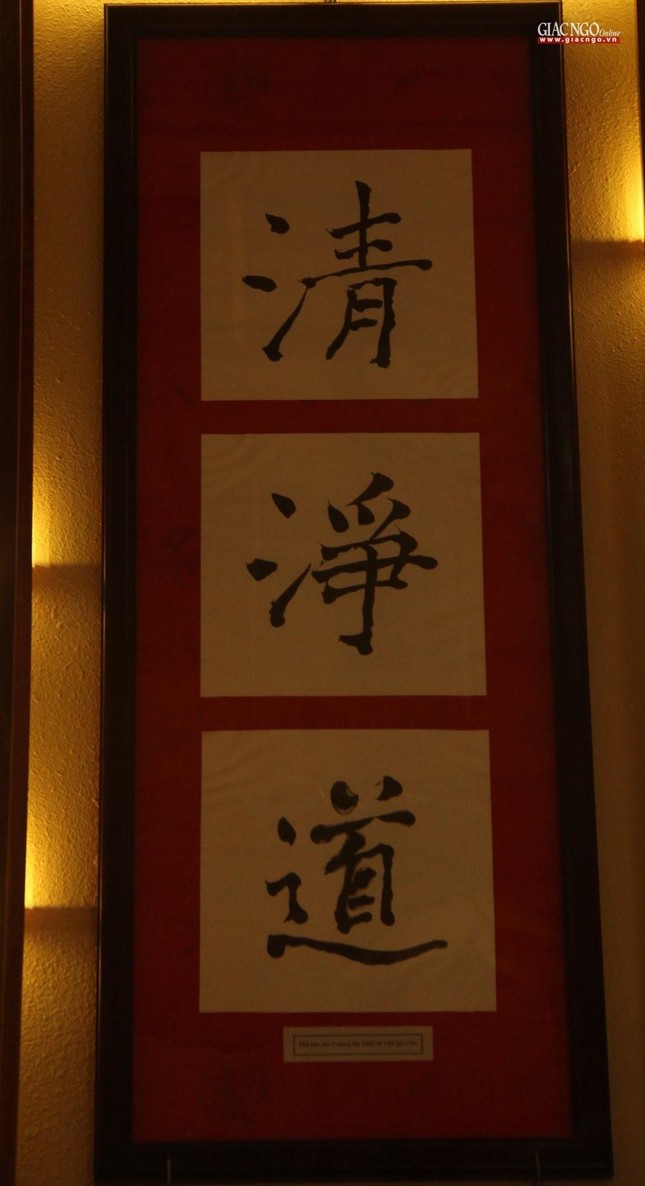 GIÁC NGỘ Online
www.giacngo.vn
清
淨
道